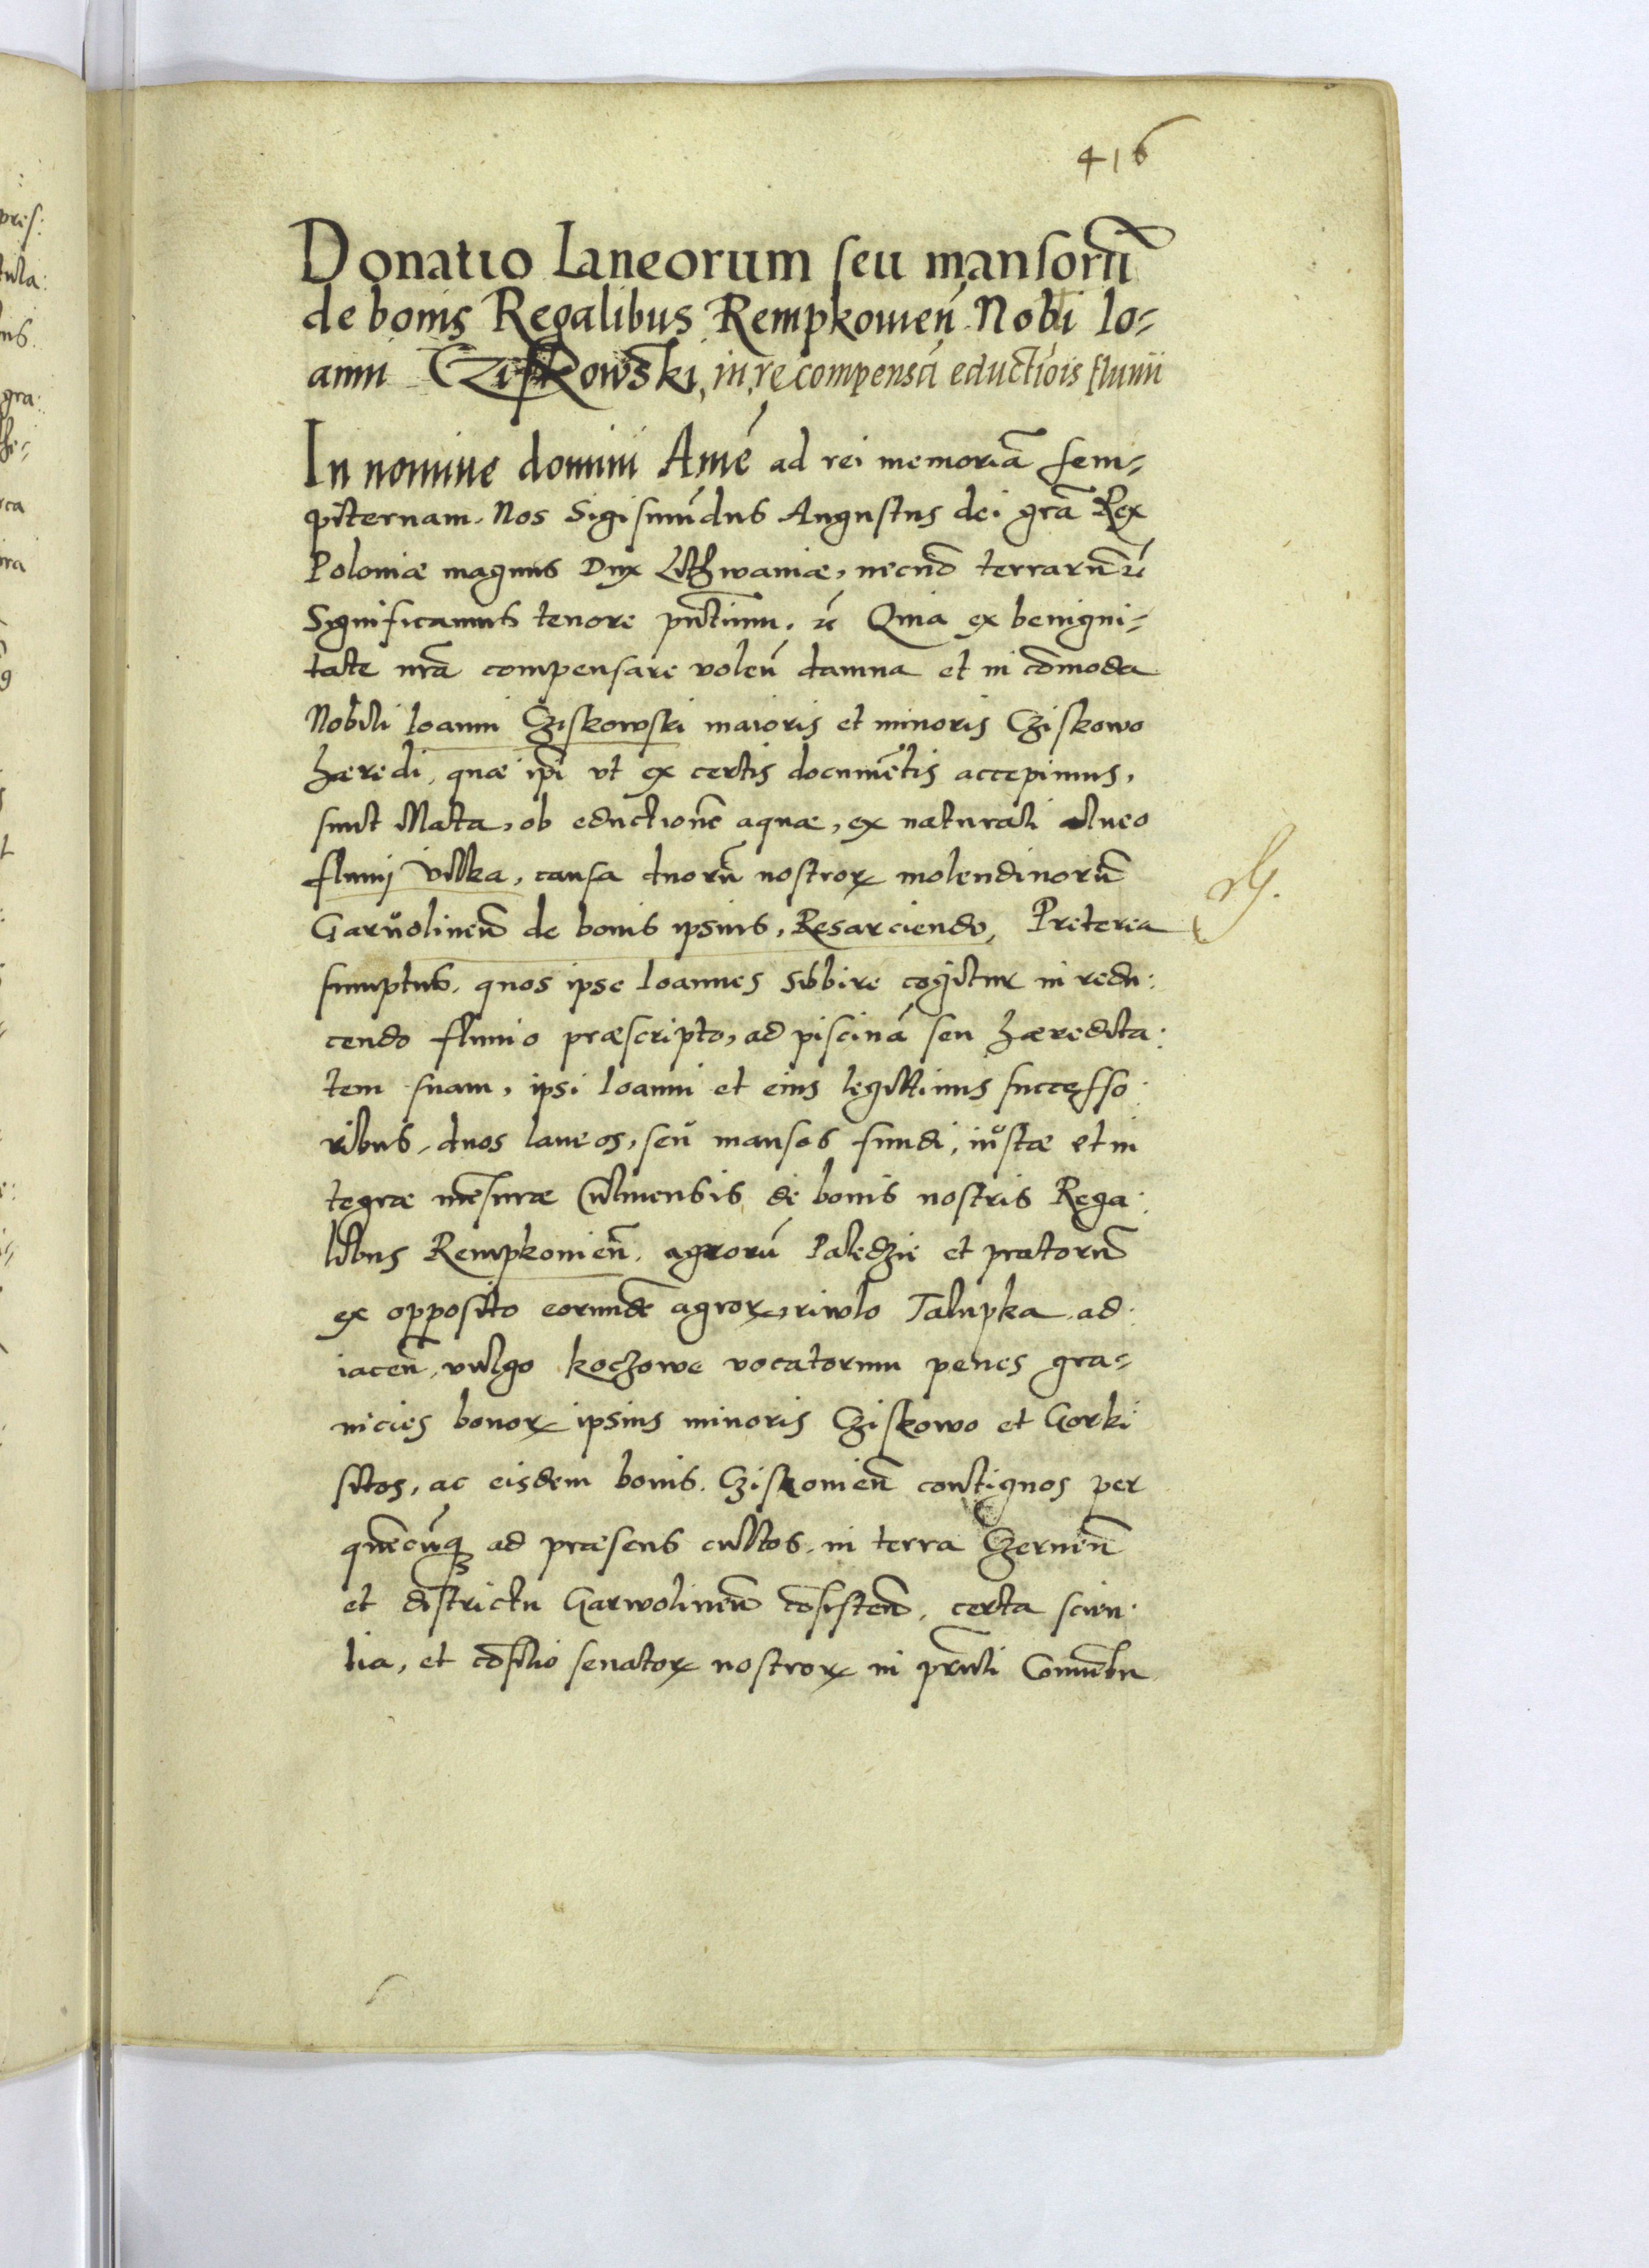 416
Donatio Laneorum seu mansorũ
de bonis Regalibus Rempkowieñ Nobi Io-
anni Cziskowski, in recompensã eductiõis fluuii
In nomine domini Amẽ ad rei memoriã sem-
piternam. Nos Sigismũdus Augustus dei gr̃a Rex
Poloniæ magnus Dux Lithwaniæ, necnõ terrarũ
Significamus tenore pñtium. Quia ex benigni-
tate nr̃a compensare voleñ damna et in cõmoda
Nobili Ioanni Cziskowski maioris et minoris Cziskowo
hæredi, quæ ip̃i vt ex certis documẽtis accepimus,
sunt illata, ob eductionẽ aquæ, ex naturali alueo
fluuij Vilka, causa duorũ nostrorꝝ molendinorũ
Garuolineñ de bonis ipsius, Resarciendo, Preterea
sumptus, quos ipse Ioannes subire cogitur in redu:
cendo fluuio præscripto, ad piscinã seu hæredita:
tem suam, ipsi Ioanni et eius legittimis successo:
ribus, duos laneos, seu mansos fundi, iustæ et in
tegræ mẽsuræ Culmensis de bonis nostris Rega:
libus Rempkouieñ. agrorũ Paledzie et pratorũ
ex opposito eorundẽ agrorꝝ, riwlo Talupka ad:
iaceñ, vulgo koczowe vocatorum penes gra-
nicies bonorꝝ ipsius minoris Cziskowo et Gorki
sitos, ac eisdem bonis. Cziskouieñ contiguos per
quẽcũqꝫ ad præsens cultos, in terra Czerneñ
et districtu Garwolineñ cõsisteñ, certa scien:
tia, et cõsilio senatorꝝ nostrorꝝ in pr̃nti Conuẽtu